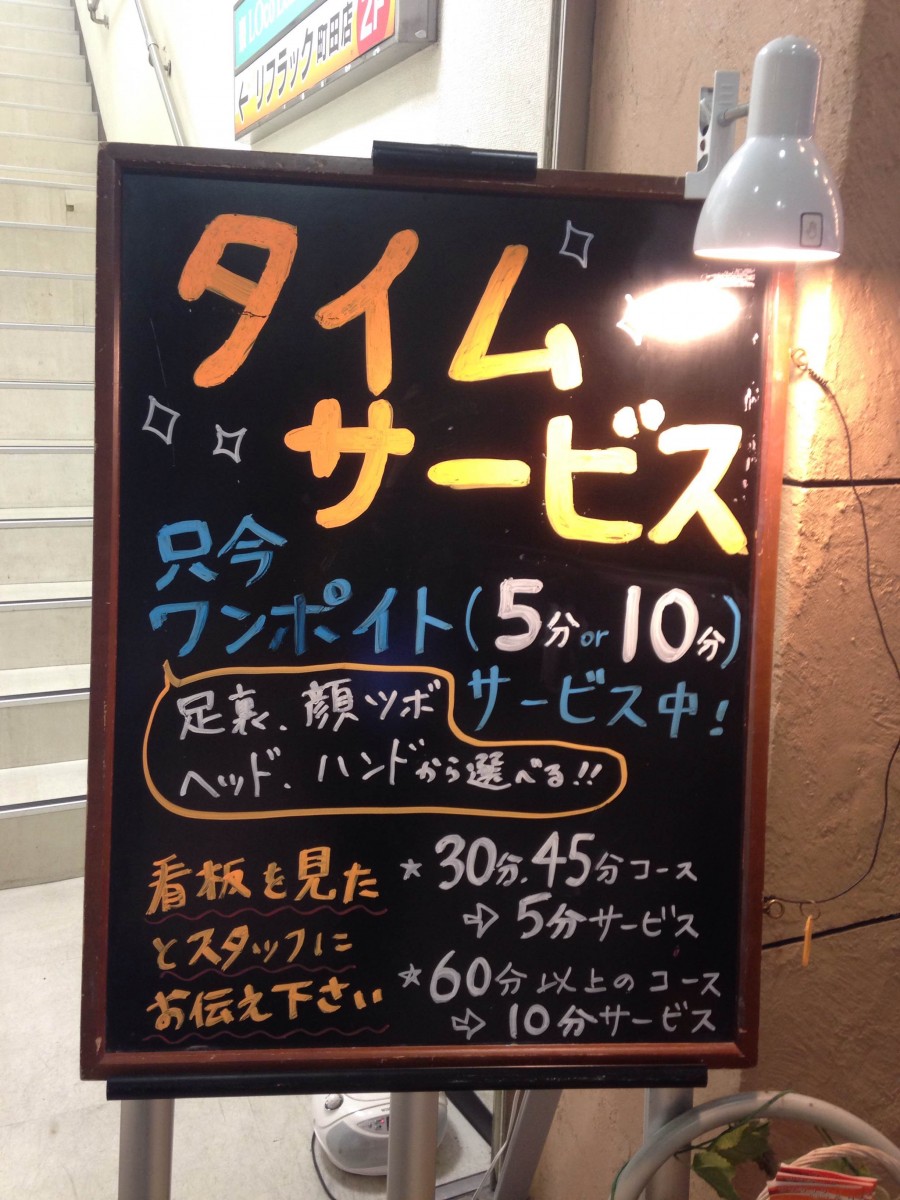 ← リフラック町田店 2F
タイム
サービス
只今
ワンポイト(5分or10分)
サービス中!
足裏、顔ツボ
ヘッド、ハンドから選べる!!
看板を見た
とスタッフに
お伝え下さい
★30分、45分コース
⇨ 5分サービス
★60分以上のコース
⇨ 10分サービス